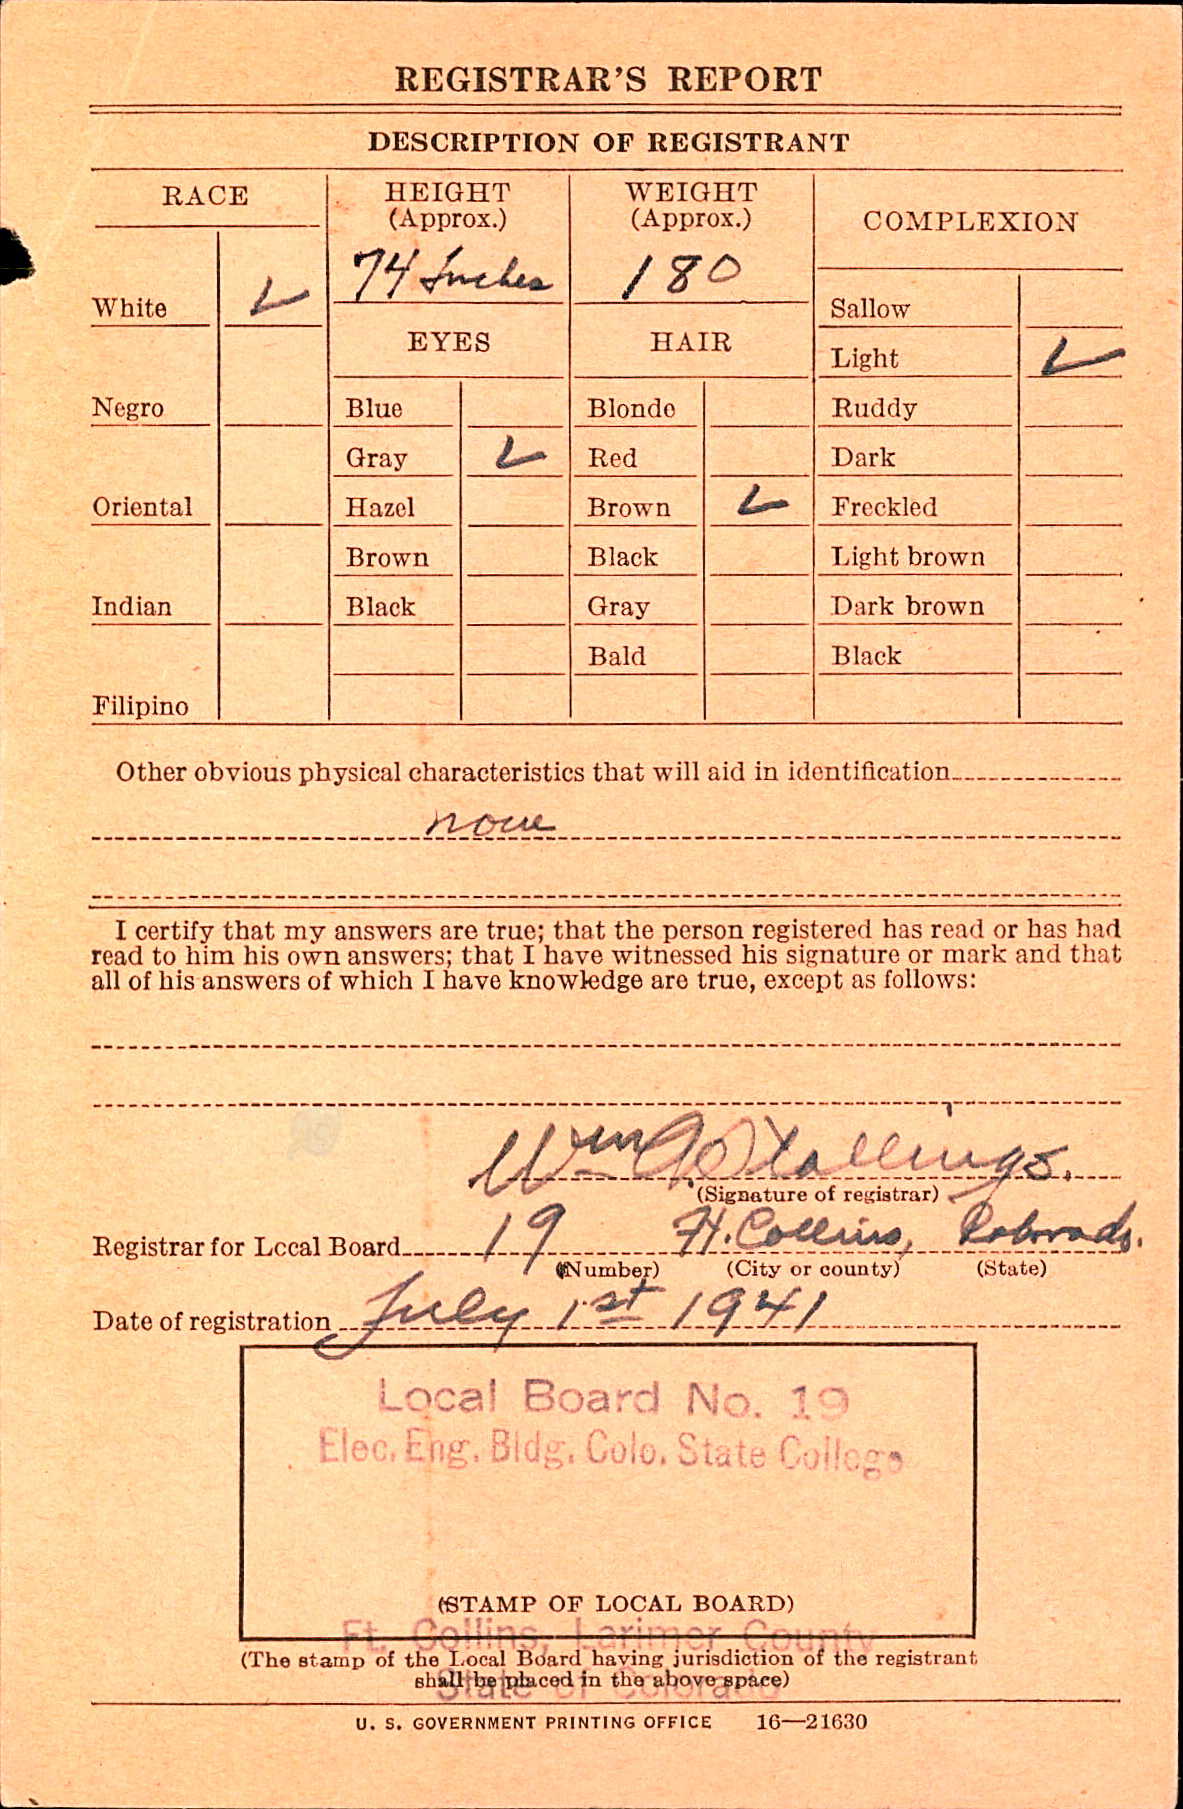 REGISTRAR'S REPORT
DESCRIPTION OF REGISTRANT
RACE
HEIGHT
(Approx.)
WEIGHT
(Approx.)
COMPLEXION
74 Inches
180
White ✓
Sallow
EYES
HAIR
Light ✓
Negro
Blue
Blonde
Ruddy
Gray ✓
Red
Dark
Oriental
Hazel
Brown ✓
Freckled
Brown
Black
Light brown
Indian
Black
Gray
Dark brown
Bald
Black
Filipino
Other obvious physical characteristics that will aid in identification
none
I certify that my answers are true; that the person registered has read or has had
read to him his own answers; that I have witnessed his signature or mark and that
all of his answers of which I have knowledge are true, except as follows:
Wm G Stallings.
(Signature of registrar)
Registrar for Local Board 19 Ft. Collins, Colorado.
(Number) (City or county) (State)
Date of registration July 1st 1941
Local Board No. 19
Elec. Eng. Bldg. Colo. State College
(STAMP OF LOCAL BOARD)
Ft. Collins, Larimer County
(The stamp of the Local Board having jurisdiction of the registrant
shall be placed in the above space)
State of Colorado
U. S. GOVERNMENT PRINTING OFFICE 16—21630